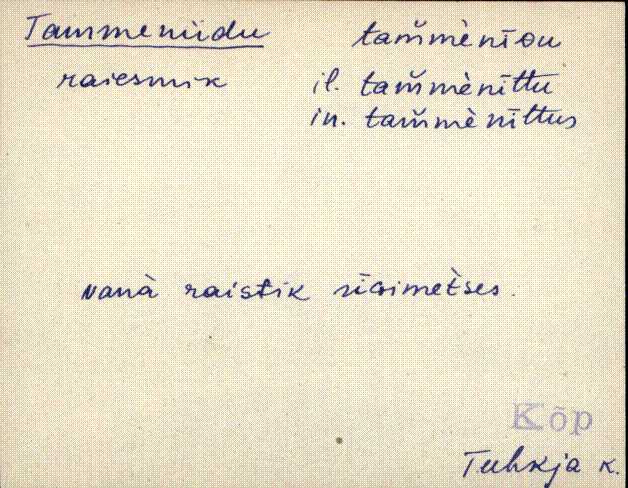 Tammeniidu tam̆mènīᴅu
raiesmik il. tam̆mènīttu
in. tam̆mènīttus
vanà raistik rīɢimet̀ses.
Kõp
Tuhkja k.